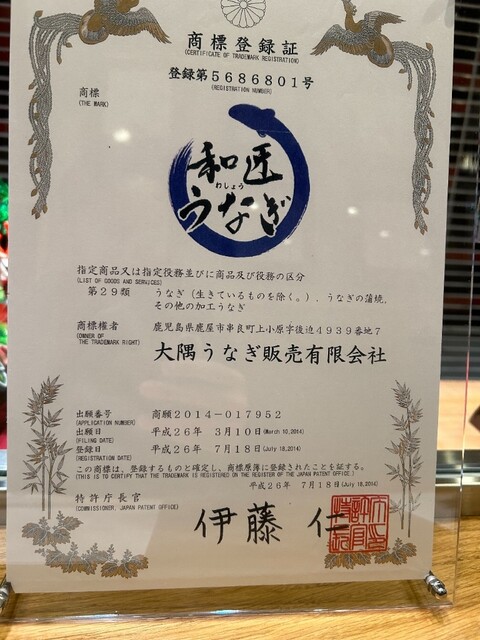 商標登録証
(CERTIFICATE OF TRADEMARK REGISTRATION)
登録第5686801号
(REGISTRATION NUMBER)
商標
(THE MARK)
和匠
わしょう
うなぎ
指定商品又は指定役務並びに商品及び役務の区分
(LIST OF GOODS AND SERVICES)
第29類 うなぎ(生きているものを除く。),うなぎの蒲焼,
その他の加工うなぎ
商標権者 鹿児島県鹿屋市串良町上小原字後迫4939番地7
(OWNER OF THE TRADEMARK RIGHT)
大隅うなぎ販売有限会社
出願番号 商願2014-017952
(APPLICATION NUMBER)
出願日 平成26年 3月10日(March 10,2014)
(FILING DATE)
登録日 平成26年 7月18日(July 18,2014)
(REGISTRATION DATE)
この商標は、登録するものと確定し、商標原簿に登録されたことを証する。
(THIS IS TO CERTIFY THAT THE TRADEMARK IS REGISTERED ON THE REGISTER OF THE JAPAN PATENT OFFICE.)
平成26年 7月18日(July 18,2014)
特許庁長官
(COMMISSIONER, JAPAN PATENT OFFICE)
伊藤 仁